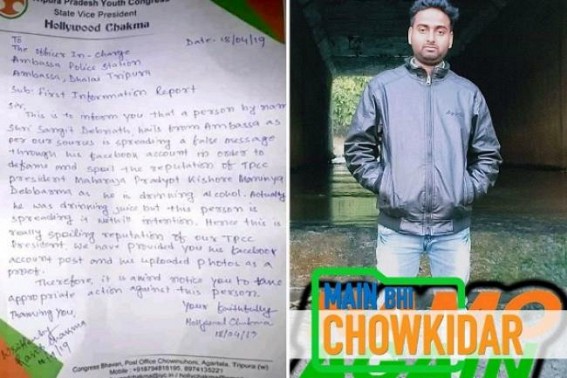 Tripura Pradesh Youth Congress
State Vice President
Hollywood Chakma
To
Date- 15/04/19
The Officer In-Charge
Ambassa Police Station
Ambassa, Dhalai Tripura
Sub: First Information Report
Sir,
This is to inform you that a person by nam
Shri Sangit Debnath hails from Ambassa as
per our sources is spreading a false message
through his facebook account in order to
defame and spoil the reputation of TPCC
president Maharaja Pradyot Kishore Manikya
Debbarma as he is drinking alcohol. Actually
he was drinking juice but this person is
spreading it with intention. Hence this is
really spoiling reputation of our TPCC
President. We have provided you his facebook
account post and his uploaded photos as a
proof.
Therefore, it is a kind notice you to take
appropriate action against this person.
Thanking You,
Your faithfully
Hollywood Chakma
15/04/19
Congress Bhavan, Post Office Chowmuhani, Agartala, Tripura (w)
MAIN BHI
CHOWKIDAR
NAMO
AGAIN